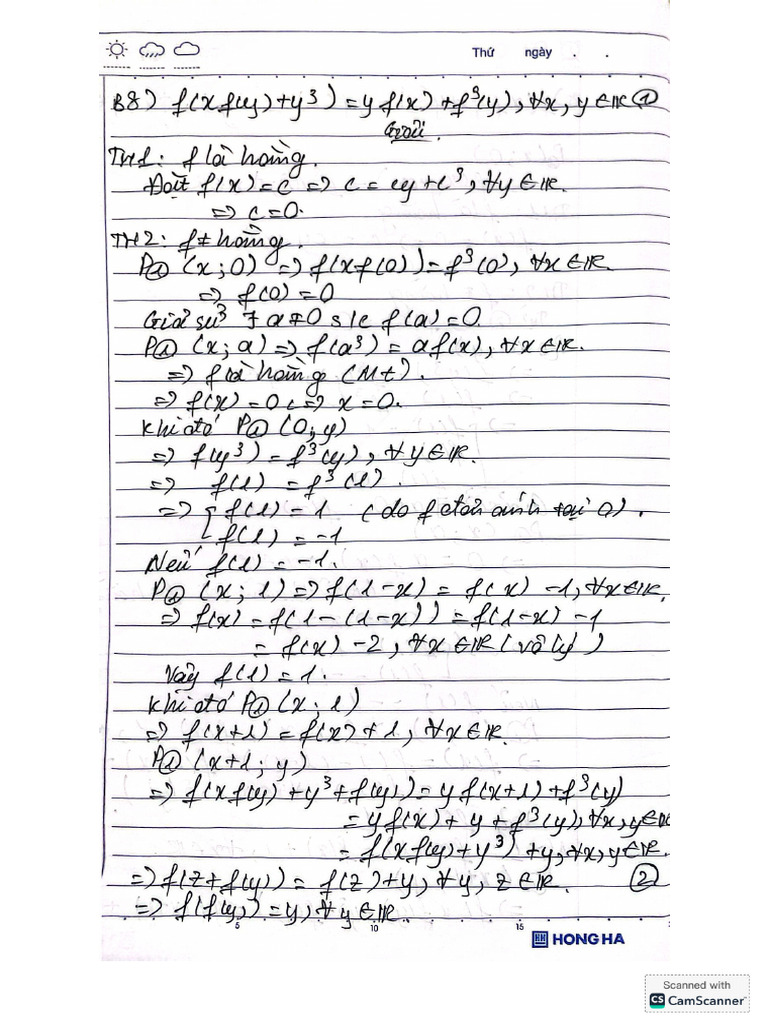 Thứ ngày . .
B8) f(xf(y)+y³) = yf(x)+f³(y), ∀x, y ∈ ℝ ①
Giải.
TH1: f là hằng.
Đặt f(x) = c ⇒ c = cy + c³, ∀y ∈ ℝ.
⇒ c = 0.
TH2: f ≠ hằng.
P① (x; 0) ⇒ f(xf(0)) = f³(0), ∀x ∈ ℝ.
⇒ f(0) = 0
Giả sử ∃ a ≠ 0 s/c f(a) = 0.
P① (x; a) ⇒ f(a³) = af(x), ∀x ∈ ℝ.
⇒ f là hằng (Mt).
⇒ f(x) = 0 ⇔ x = 0.
Khi đó P① (0; y)
⇒ f(y³) = f³(y), ∀y ∈ ℝ.
⇒ f(1) = f³(1).
⇒ [ f(1) = 1 (do f đơn ánh tại 0).
f(1) = -1
Nếu f(1) = -1.
P① (x; 1) ⇒ f(1-x) = f(x) -1, ∀x ∈ ℝ.
⇒ f(x) = f(1-(1-x)) = f(1-x) -1
= f(x) -2, ∀x ∈ ℝ (vô lý)
Vậy f(1) = 1.
Khi đó P① (x; 1)
⇒ f(x+1) = f(x) + 1, ∀x ∈ ℝ.
P① (x+1; y)
⇒ f(xf(y) + y³ + f(y)) = yf(x+1) + f³(y)
= yf(x) + y + f³(y), ∀x, y ∈ ℝ
= f(xf(y) + y³) + y, ∀x, y ∈ ℝ.
⇒ f(z + f(y)) = f(z) + y, ∀y, z ∈ ℝ. ②
⇒ f(f(y)) = y, ∀y ∈ ℝ
5 10 15
HONG HA
Scanned with
CS CamScanner